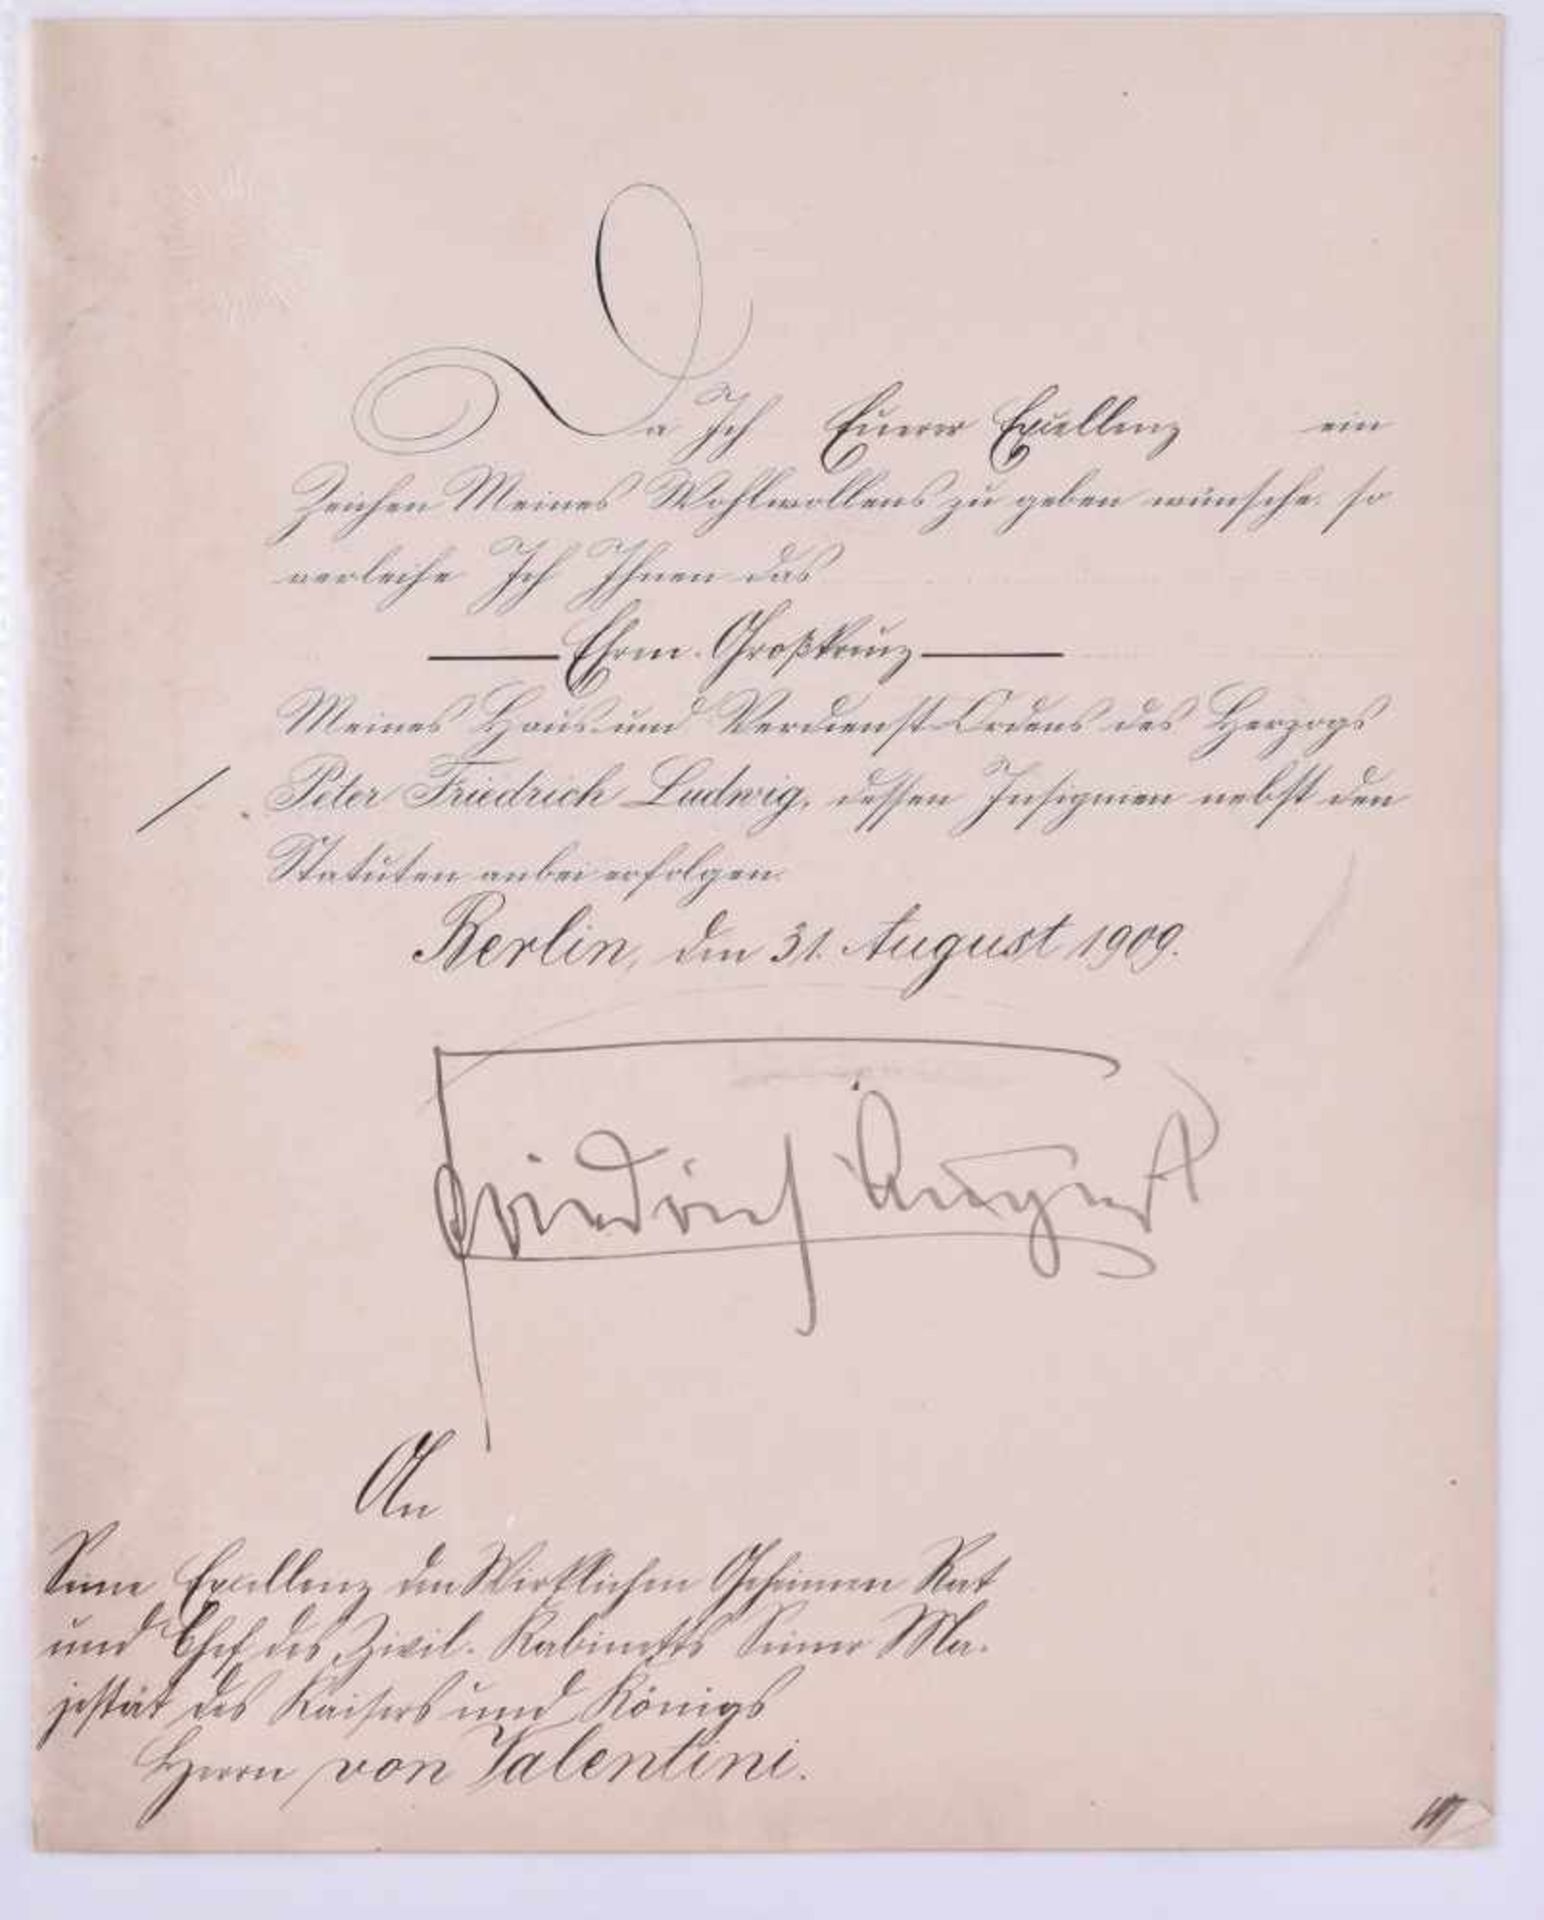 Da Ich Eurer Excellenz ein
Zeichen Meines Wohlwollens zu geben wünsche, so
verleihe Ich Ihnen das
Ehren-Großkreuz
Meines Haus- und Verdienst-Ordens des Herzogs
Peter Friedrich Ludwig, dessen Insignien nebst den
Statuten anbei erfolgen.
Berlin, den 31. August 1909.
Friedrich August
An
Seine Excellenz den Wirklichen Geheimen Rat
und Chef des Zivil-Kabinetts Seiner Ma-
jestät des Kaisers und Königs
Herrn von Valentini.